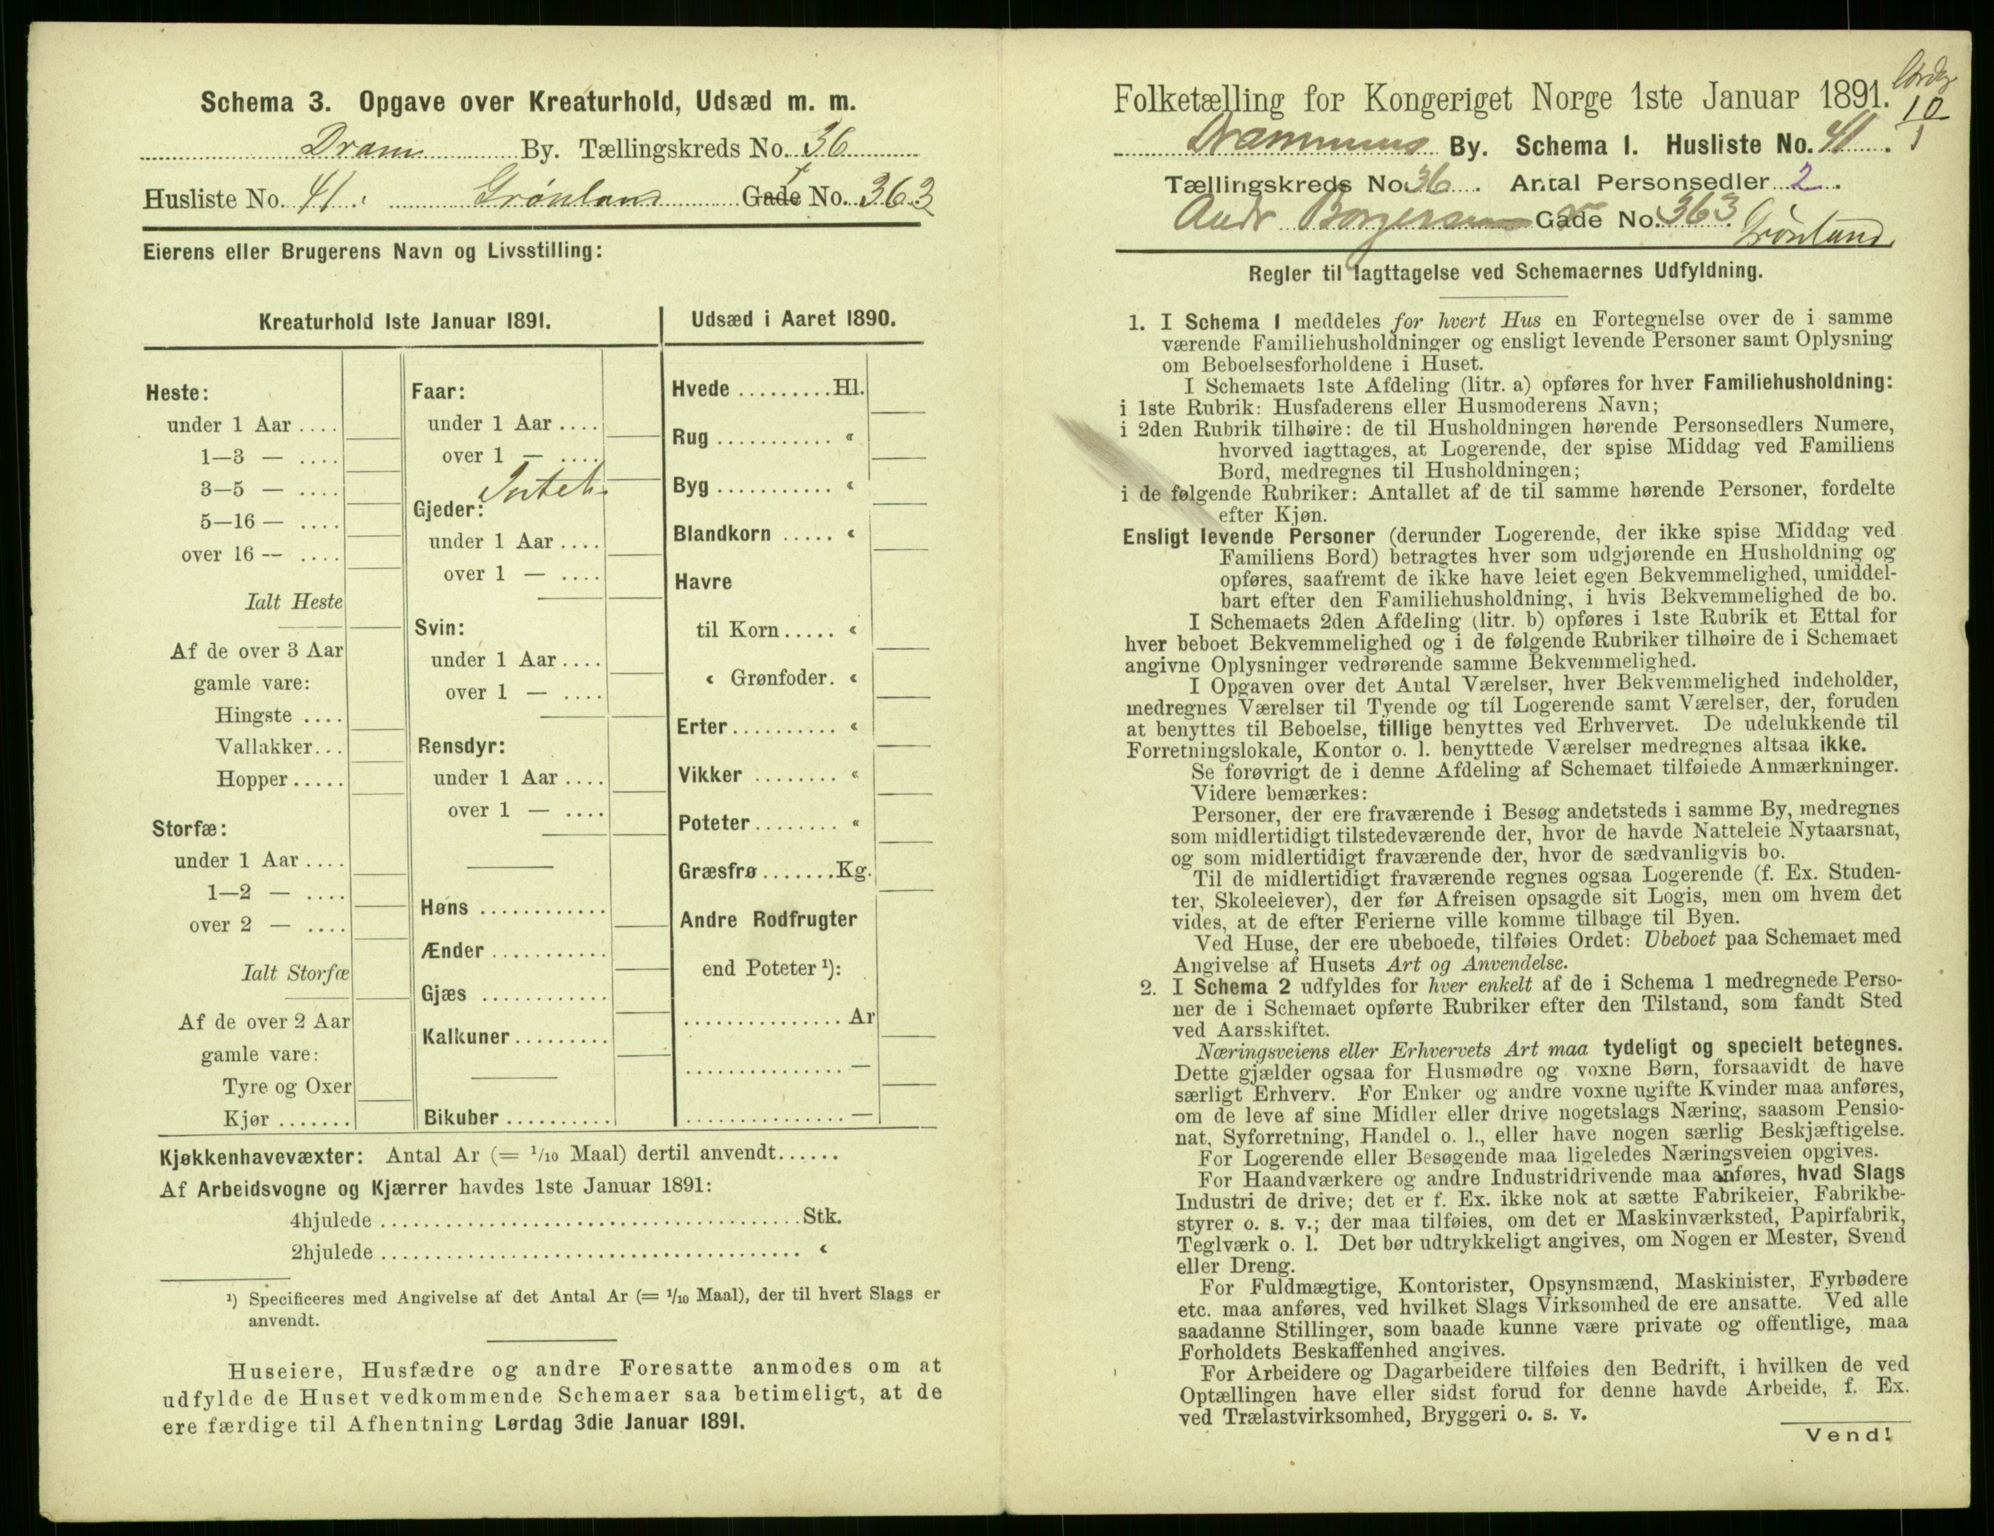 Schema 3. Opgave over Kreaturhold, Udsæd m. m.
Dram By. Tællingskreds No. 36
Husliste No. 41. Grønland Gade No. 363
Eierens eller Brugerens Navn og Livsstilling:
Kreaturhold 1ste Januar 1891.
Heste:
under 1 Aar ....
1—3 — ....
3—5 — ....
5—16 — ....
over 16 — ....
Ialt Heste
Af de over 3 Aar
gamle vare:
Hingste ....
Vallakker...
Hopper.....
Storfæ:
under 1 Aar ....
1—2 — ....
over 2 — ....
Ialt Storfæ
Af de over 2 Aar
gamle vare:
Tyre og Oxer
Kjør .......
Faar:
under 1 Aar ....
over 1 — ....
Intet
Gjeder:
under 1 Aar ....
over 1 — ....
Svin:
under 1 Aar ....
over 1 — ....
Rensdyr:
under 1 Aar ....
over 1 — ....
Høns ............
Ænder ...........
Gjæs ............
Kalkuner.........
Bikuber..........
Udsæd i Aaret 1890.
Hvede .........Hl.
Rug ........... «
Byg ........... «
Blandkorn ..... «
Havre
til Korn..... «
« Grønfoder. «
Erter.......... «
Vikker ........ «
Poteter........ «
Græsfrø.......Kg.
Andre Rodfrugter
end Poteter ¹):
............... Ar
............... —
............... —
Kjøkkenhavevæxter: Antal Ar (= 1/10 Maal) dertil anvendt......
Af Arbeidsvogne og Kjærrer havdes 1ste Januar 1891:
4hjulede .......................................Stk.
2hjulede ....................................... «
¹) Specificeres med Angivelse af det Antal Ar (= 1/10 Maal), der til hvert Slags er
anvendt.
Huseiere, Husfædre og andre Foresatte anmodes om at
udfylde de Huset vedkommende Schemaer saa betimeligt, at de
ere færdige til Afhentning Lørdag 3die Januar 1891.
Folketælling for Kongeriget Norge 1ste Januar 1891.
10/1
Drammens By. Schema I. Husliste No. 41.
Tællingskreds No. 36. Antal Personsedler 2.
Andr Borgersen Gade No. 363. Grønland
Regler til Iagttagelse ved Schemaernes Udfyldning.
1. I Schema I meddeles for hvert Hus en Fortegnelse over de i samme
værende Familiehusholdninger og ensligt levende Personer samt Oplysning
om Beboelsesforholdene i Huset.
I Schemaets 1ste Afdeling (litr. a) opføres for hver Familiehusholdning:
i 1ste Rubrik: Husfaderens eller Husmoderens Navn;
i 2den Rubrik tilhøire: de til Husholdningen hørende Personsedlers Numere,
hvorved iagttages, at Logerende, der spise Middag ved Familiens
Bord, medregnes til Husholdningen;
i de følgende Rubriker: Antallet af de til samme hørende Personer, fordelte
efter Kjøn.
Ensligt levende Personer (derunder Logerende, der ikke spise Middag ved
Familiens Bord) betragtes hver som udgjørende en Husholdning og
opføres, saafremt de ikke have leiet egen Bekvemmelighed, umiddel-
bart efter den Familiehusholdning, i hvis Bekvemmelighed de bo.
I Schemaets 2den Afdeling (litr. b) opføres i 1ste Rubrik et Ettal for
hver beboet Bekvemmelighed og i de følgende Rubriker tilhøire de i Schemaet
angivne Oplysninger vedrørende samme Bekvemmelighed.
I Opgaven over det Antal Værelser, hver Bekvemmelighed indeholder,
medregnes Værelser til Tyende og til Logerende samt Værelser, der, foruden
at benyttes til Beboelse, tillige benyttes ved Erhvervet. De udelukkende til
Forretningslokale, Kontor o. l. benyttede Værelser medregnes altsaa ikke.
Se forøvrigt de i denne Afdeling af Schemaet tilføiede Anmærkninger.
Videre bemærkes:
Personer, der ere fraværende i Besøg andetsteds i samme By, medregnes
som midlertidigt tilstedeværende der, hvor de havde Natteleie Nytaarsnat,
og som midlertidigt fraværende der, hvor de sædvanligvis bo.
Til de midlertidigt fraværende regnes ogsaa Logerende (f. Ex. Studen-
ter, Skoleelever), der før Afreisen opsagde sit Logis, men om hvem det
vides, at de efter Ferierne ville komme tilbage til Byen.
Ved Huse, der ere ubeboede, tilføies Ordet: Ubeboet paa Schemaet med
Angivelse af Husets Art og Anvendelse.
2. I Schema 2 udfyldes for hver enkelt af de i Schema 1 medregnede Perso-
ner de i Schemaet opførte Rubriker efter den Tilstand, som fandt Sted
ved Aarsskiftet.
Næringsveiens eller Erhvervets Art maa tydeligt og specielt betegnes.
Dette gjælder ogsaa for Husmødre og voxne Børn, forsaavidt de have
særligt Erhverv. For Enker og andre voxne ugifte Kvinder maa anføres,
om de leve af sine Midler eller drive nogetslags Næring, saasom Pensio-
nat, Syforretning, Handel o. l., eller have nogen særlig Beskjæftigelse.
For Logerende eller Besøgende maa ligeledes Næringsveien opgives.
For Haandværkere og andre Industridrivende maa anføres, hvad Slags
Industri de drive; det er f. Ex. ikke nok at sætte Fabrikeier, Fabrikbe-
styrer o. s. v.; der maa tilføies, om det er Maskinværksted, Papirfabrik,
Teglværk o. l. Det bør udtrykkeligt angives, om Nogen er Mester, Svend
eller Dreng.
For Fuldmægtige, Kontorister, Opsynsmænd, Maskinister, Fyrbødere
etc. maa anføres, ved hvilket Slags Virksomhed de ere ansatte. Ved alle
saadanne Stillinger, som baade kunne være private og offentlige, maa
Forholdets Beskaffenhed angives.
For Arbeidere og Dagarbeidere tilføies den Bedrift, i hvilken de ved
Optællingen have eller sidst forud for denne havde Arbeide, f. Ex.
ved Trælastvirksomhed, Bryggeri o. s. v.
Vend!